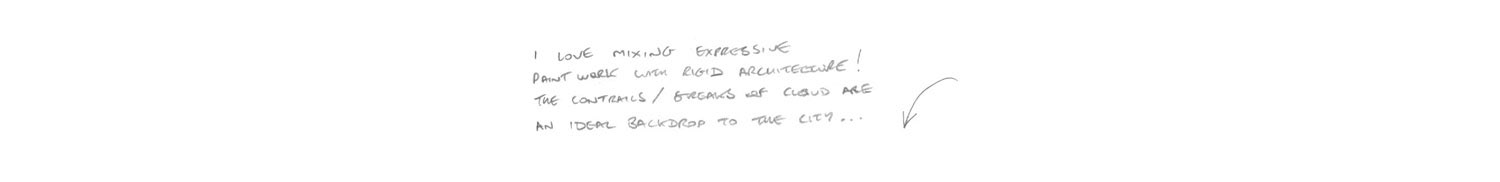 I LOVE MIXING EXPRESSIVE
PAINT WORK WITH RIGID ARCHITECTURE!
THE CONTRAILS / BREAKS OF CLOUD ARE
AN IDEAL BACKDROP TO THE CITY...